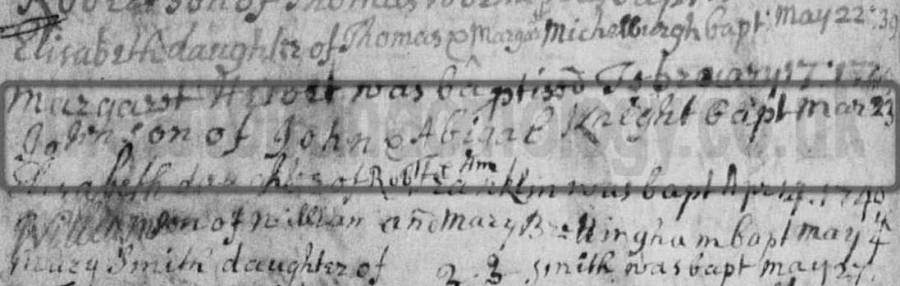 son of Thomas
Elisabeth daughter of Thomas & Margat Michelburgh bapt: May 22: 39
Margaret was baptised February 17: 1740
John son of John & Abigal Knight bapt Mar 23
Elizabeth daughter of Robt & Ann was bapt Apr 4. 1740
William son of William and Mary Brettingham bapt May 4
Mary Smith daughter of Smith was bapt May 27